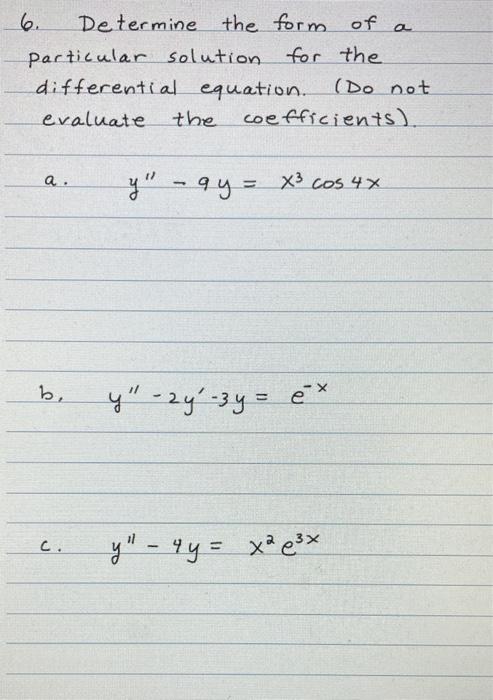 6. Determine the form of a
particular solution for the
differential equation. (Do not
evaluate the coefficients).
a. y" - 9y = x³ cos 4x
b. y" - 2y' - 3y = e⁻ˣ
c. y" - 4y = x² e³ˣ